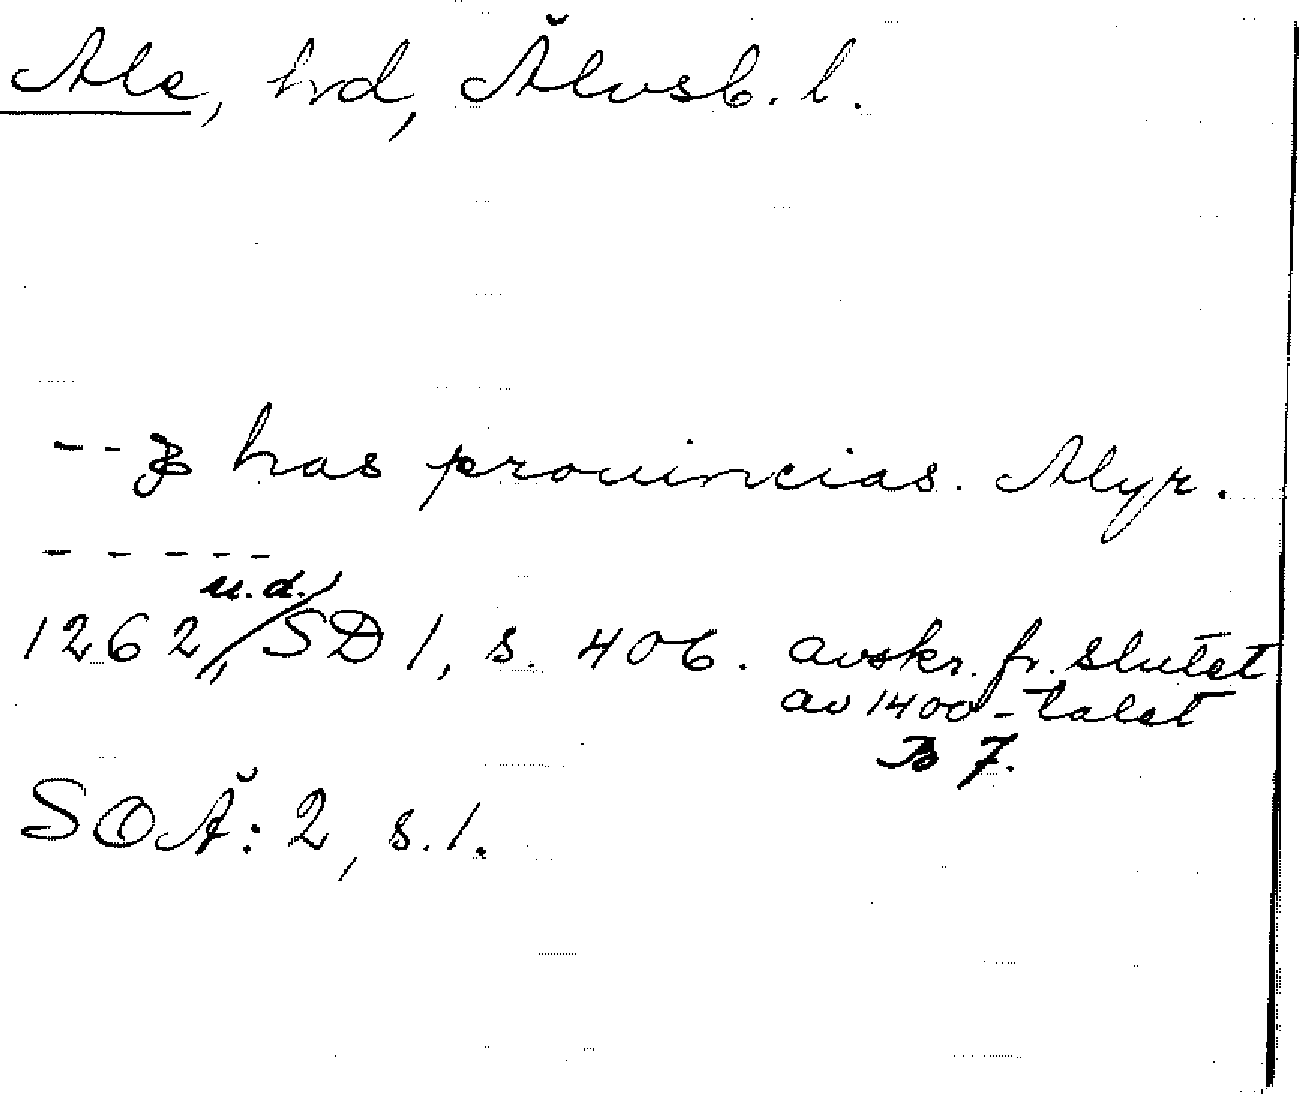 Ale, hd, Älvsb. l.
-- has prouincias. Alyr.
- - - - -
u.d.
1262, SD 1, s. 406. avskr. fr. slutet
av 1400-talet
B 7.
SOÄ: 2, s. 1.